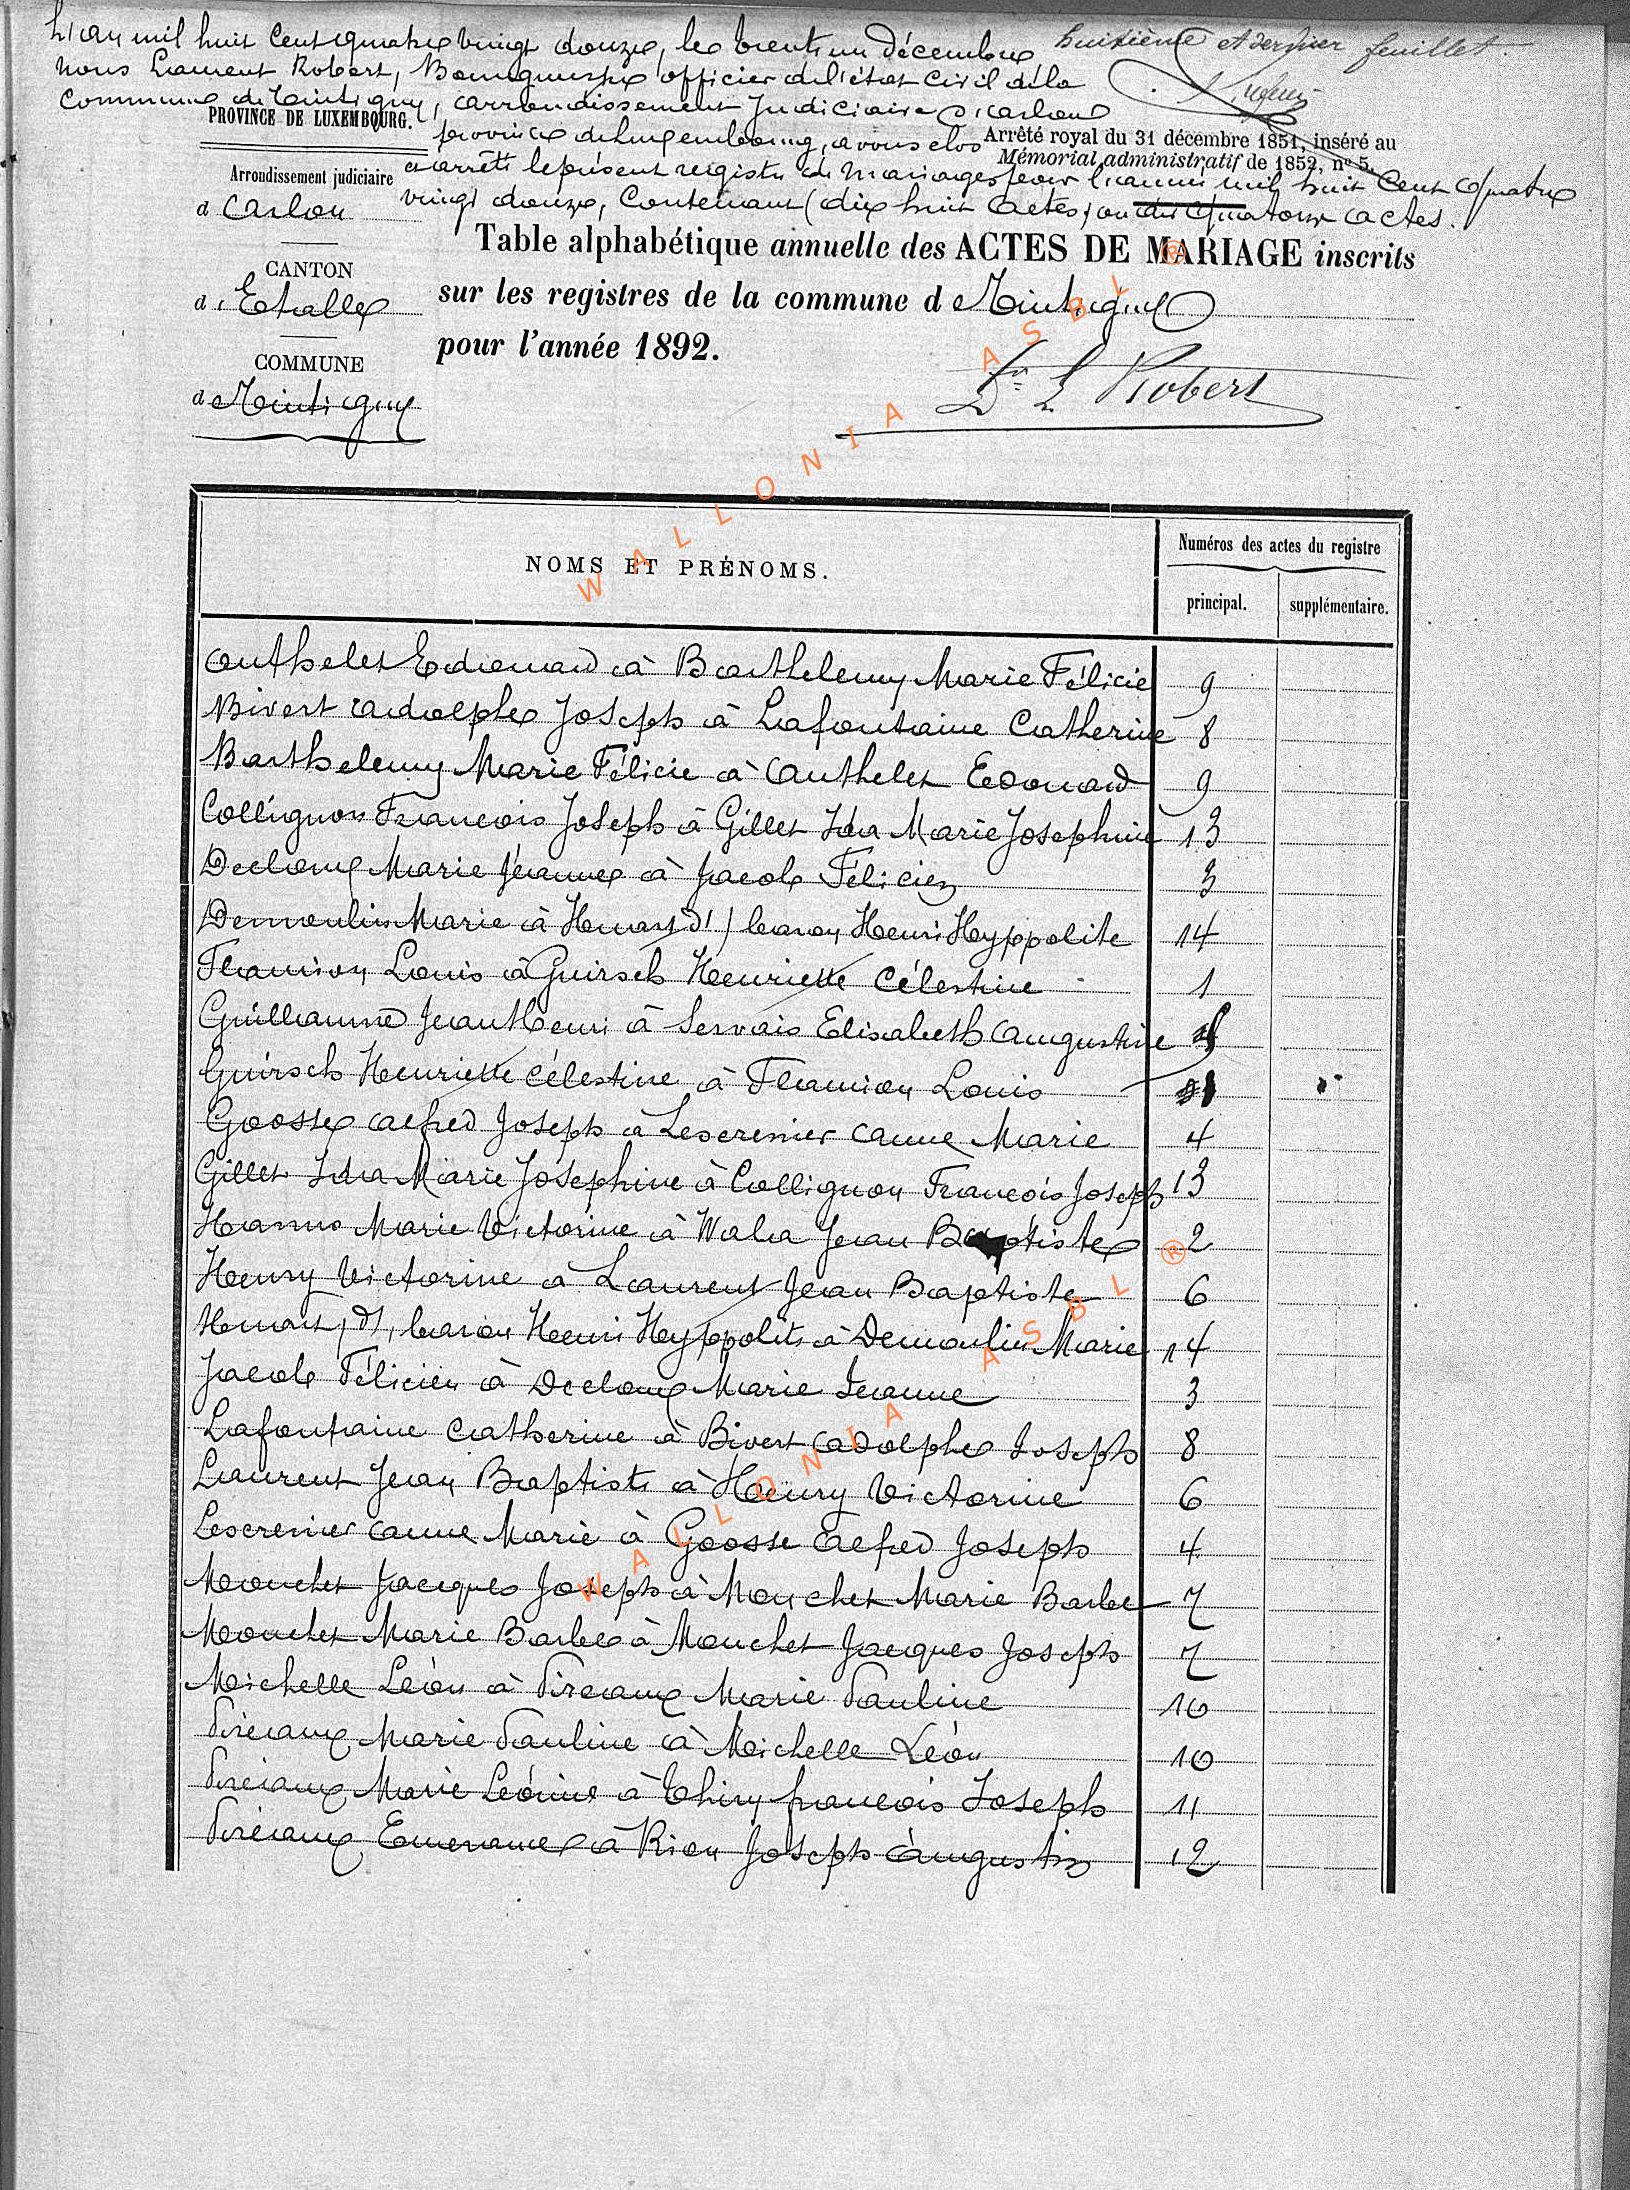 L'an mil huit cent quatre vingt douze, le trente un Décembre,
huitième et dernier feuillet.
nous Laurent Robert, Bourgmestre officier de l'état civil de la
commune de Tintigny, arrondissement judiciaire d'Arlon
PROVINCE DE LUXEMBOURG.
province de Luxembourg, avons clos
Arrêté royal du 31 décembre 1851, inséré au
Mémorial administratif de 1852, nº 5.
et arrêté le présent registre de mariages pour l'année mil huit cent quatre
Arrondissement judiciaire
vingt douze, contenant (dix huit actes) ou dit quatorze actes.
d'Arlon
Table alphabétique annuelle des ACTES DE MARIAGE inscrits
CANTON
d'Etalle
sur les registres de la commune de Tintigny
pour l'année 1892.
COMMUNE
de Tintigny
Dr L Robert
NOMS ET PRÉNOMS.
Numéros des actes du registre
principal. supplémentaire.
Authelet Edouard à Barthelemy Marie Félicie 9
Bivert Adolphe Joseph à Lafontaine Catherine 8
Barthelemy Marie Félicie à Authelet Edouard 9
Collignon François Joseph à Gillet Ida Marie Josephine 13
Decloux Marie Jeanne à Jacob Félicien 3
Demoulin Marie à Huart, d', baron Henri Hyppolite 14
Flamion Louis à Guirsch Henriette Célestine 1
Guillaume Jean Henri à Servais Elisabeth Augustine
Guirsch Henriette Célestine à Flamion Louis 1
Goosse Alfred Joseph à Lescrenier Anne Marie 4
Gillet Ida Marie Joséphine à Collignon François Joseph 13
Hanus Marie Victorine à Wala Jean Baptiste 2
Henry Victorine à Laurent Jean Baptiste 6
Huart, d', baron Henri Hyppolite à Demoulin Marie 14
Jacob Félicien à Decloux Marie Jeanne 3
Lafontaine Catherine à Bivert Adolphe Joseph 8
Laurent Jean Baptiste à Henry Victorine 6
Lescrenier Anne Marie à Goosse Alfred Joseph 4
Mouchet Jacques Joseph à Mouchet Marie Barbe 7
Mouchet Marie Barbe à Mouchet Jacques Joseph 7
Michelle Léon à Piréaux Marie Pauline 10
Piréaux Marie Pauline à Michelle Léon 10
Piréaux Marie Léonie à Thiry François Joseph 11
Piréaux Emerance à Rion Joseph Augustin 12
WALLONIA ASBL ®
WALLONIA ASBL ®